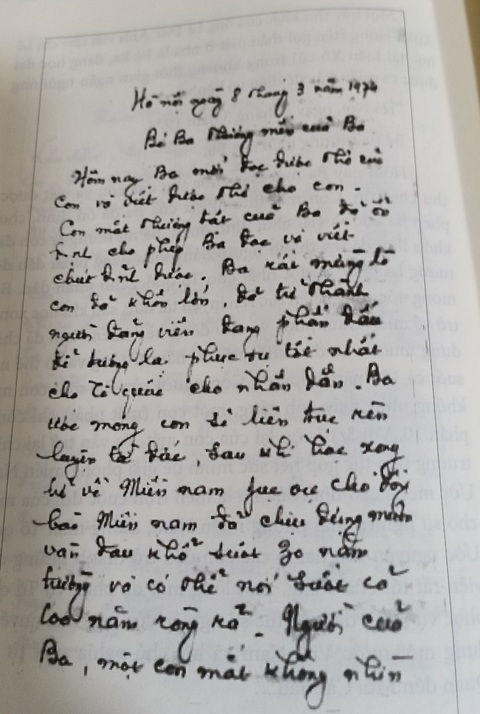 Hà nội ngày 8 tháng 3 năm 1974
Bé Ba thương mến của Ba
Hôm nay Ba mới đọc được thơ của
con và viết được thơ cho con.
Con mắt thương tật của Ba đã ổn
định cho phép Ba đọc và viết
chút đỉnh được. Ba rất mừng là
con đã khôn lớn, đã trở thành
người đảng viên đang phấn đấu
để tương lai phục vụ tốt nhất
cho Tổ quốc cho nhân dân. Ba
ước mong con sẽ liên tục rèn
luyện tu đức sau khi học xong
trở về Miền nam phục vụ cho đồng
bào Miền nam đã chịu đựng muôn
vàn đau khổ suốt 30 năm
trường và có thể nói suốt cả
100 năm ròng rã. Người của
Ba, một con mắt không nhìn